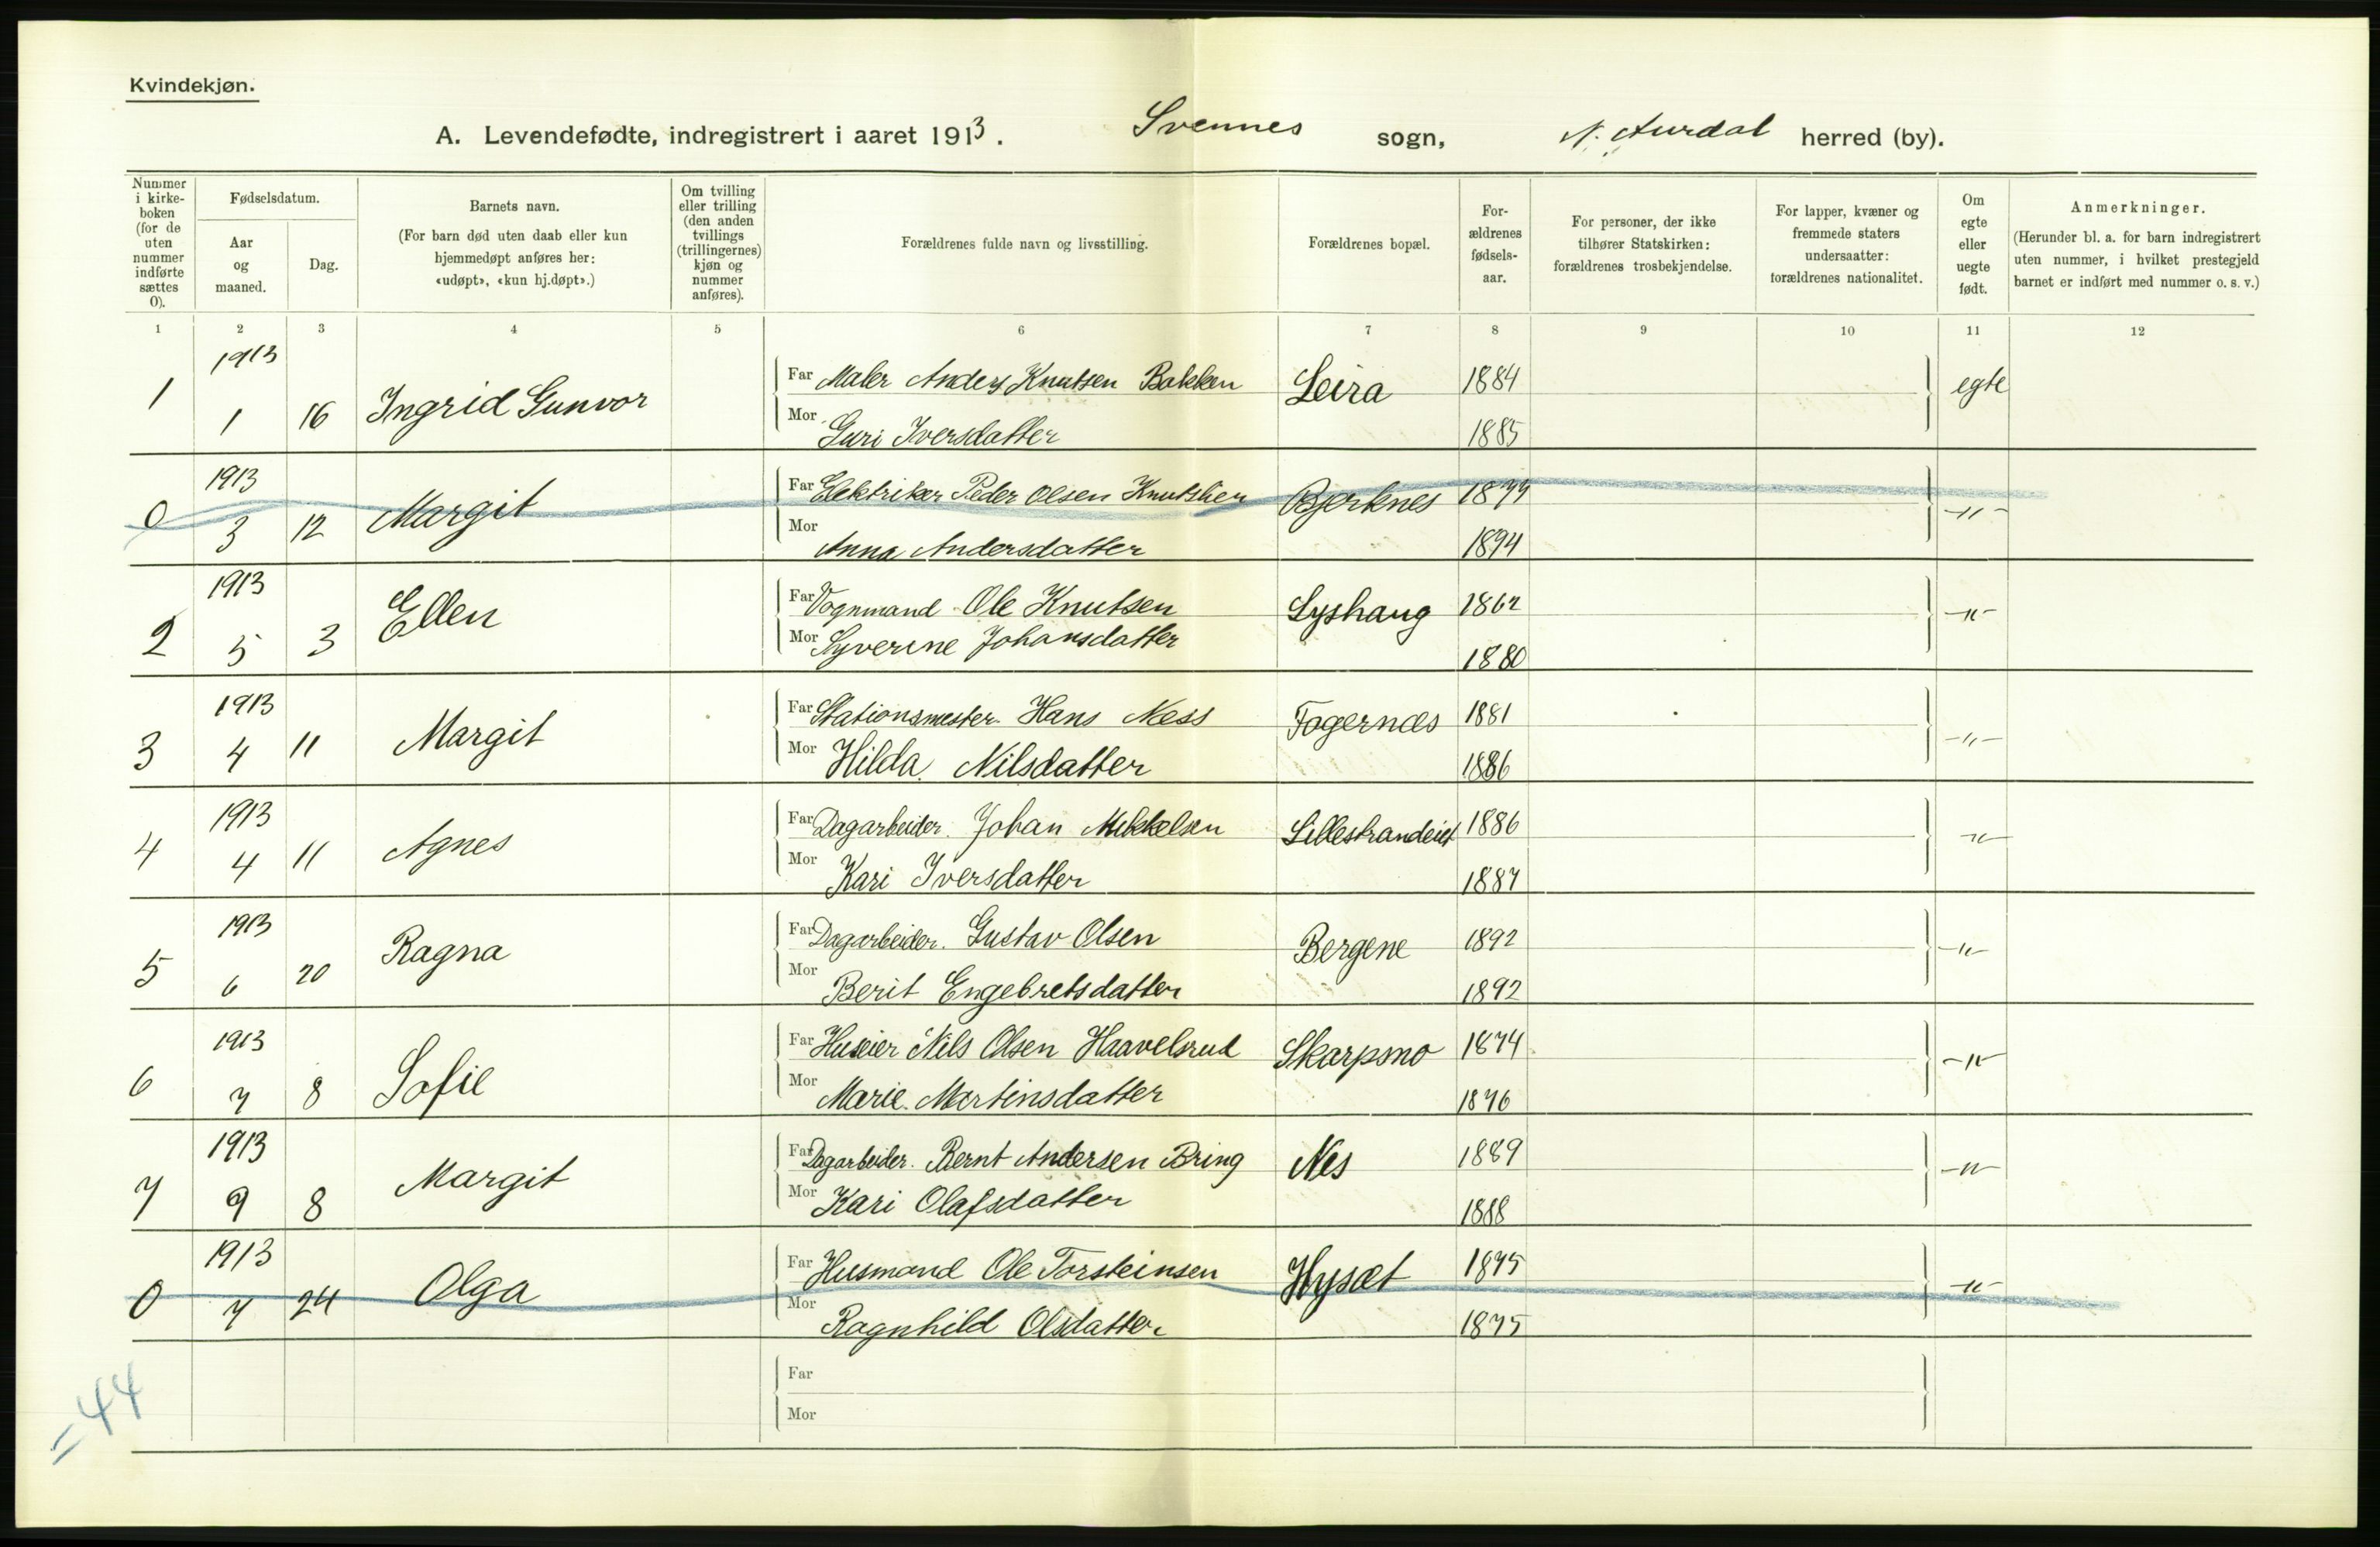 Kvindekjøn.
A. Levendefødte, indregistrert i aaret 1913. Svennes sogn, N. Aurdal herred (by).
Nummer i kirkeboken (for de uten nummer indførte sættes 0).
Fødselsdatum.
Aar og maaned.
Dag.
Barnets navn.
(For barn død uten daab eller kun hjemmedøpt anføres her: «udøpt», «kun hj.døpt».)
Om tvilling eller trilling (den anden tvillings (trillingernes) kjøn og nummer anføres).
Forældrenes fulde navn og livsstilling.
Forældrenes bopæl.
Forældrenes fødselsaar.
For personer, der ikke tilhører Statskirken: forældrenes trosbekjendelse.
For lapper, kvæner og fremmede staters undersaatter: forældrenes nationalitet.
Om egte eller uegte født.
Anmerkninger.
(Herunder bl. a. for barn indregistrert uten nummer, i hvilket prestegjeld barnet er indført med nummer o. s. v.)
1 2 3 4 5 6 7 8 9 10 11 12
1 1913 1 16 Ingrid Gunvor Far Maler Anders Knutsen Bakken Leira 1884 egte
Mor Guri Iversdatter 1885
0 1913 3 12 Margit Far Elektriker Peder Olsen Knutslien Bjerknes 1877 -"-
Mor Anna Andersdatter 1894
2 1913 5 3 Ellen Far Vognmand Ole Knutsen Lyshaug 1862 -"-
Mor Syverine Johansdatter 1880
3 1913 4 11 Margit Far Stationsmester Hans Ness Fagernæs 1881 -"-
Mor Hilda Nilsdatter 1886
4 1913 4 11 Agnes Far Dagarbeider. Johan Mikkelsen Lillestrandeiet 1886 -"-
Mor Kari Iversdatter 1887
5 1913 6 20 Ragna Far Dagarbeider. Gustav Olsen Bergene 1892 -"-
Mor Berit Engebretsdatter 1892
6 1913 7 8 Sofie Far Huseier Nils Olsen Haavelsrud Skarpsno 1874 -"-
Mor Marie Martinsdatter 1876
7 1913 9 8 Margit Far Dagarbeider. Bernt Andersen Bring Nes 1889 -"-
Mor Kari Olafsdatter 1888
0 1913 7 24 Olga Far Husmand Ole Torsteinsen Hysæt 1875 -"-
Mor Ragnhild Olsdatter 1875
Far
Mor
=44